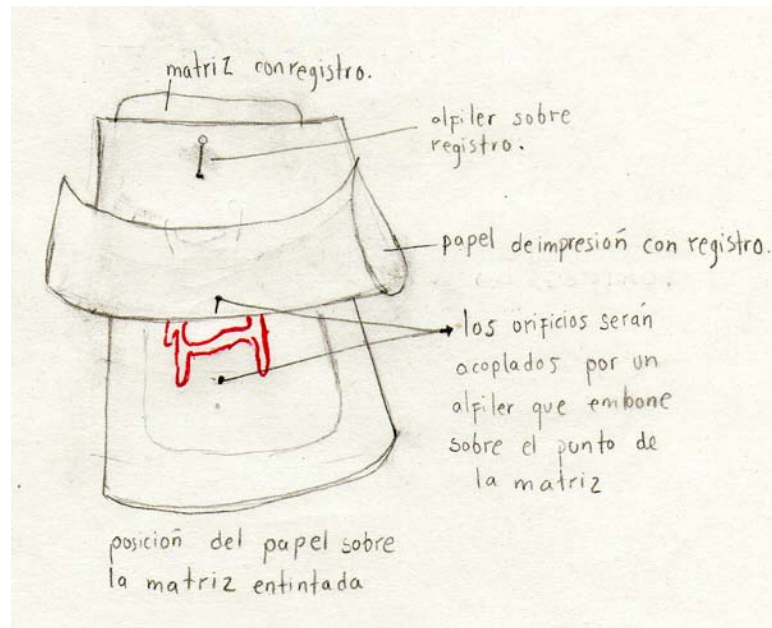 matriz con registro.
alfiler sobre
registro.
papel de impresión con registro.
los orificios serán
acoplados por un
alfiler que embone
sobre el punto de
la matriz
posición del papel sobre
la matriz entintada